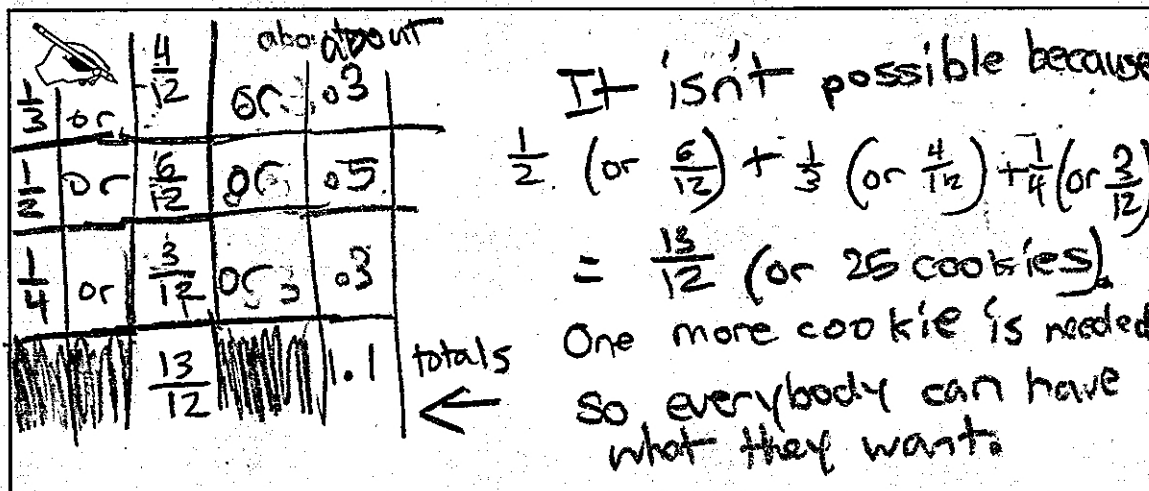 about
1/3 or 4/12 or .3
1/2 or 6/12 or .5
1/4 or 3/12 or .3
13/12 1.1 totals
It isn't possible because
1/2 (or 6/12) + 1/3 (or 4/12) + 1/4 (or 3/12)
= 13/12 (or 25 cookies).
One more cookie is needed
so everybody can have
what they want.